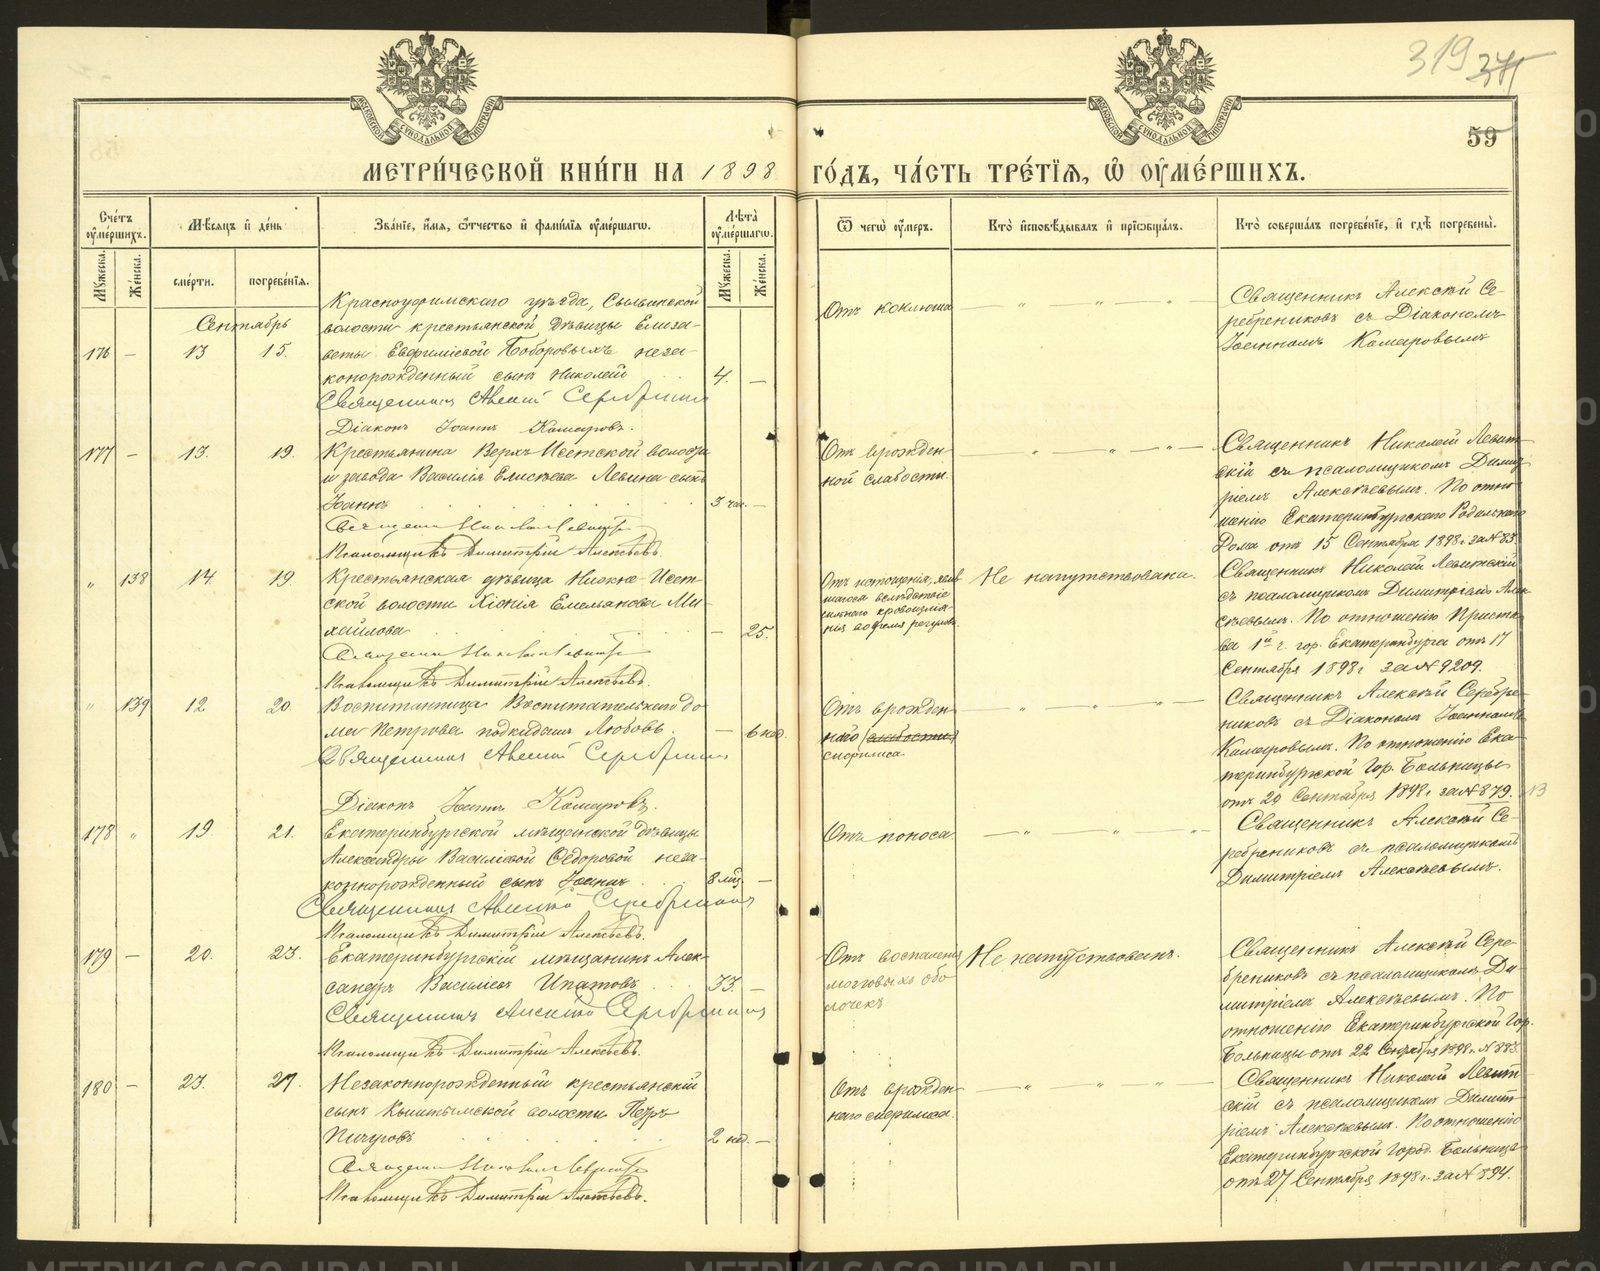 319 371
59
МЕТРИ́ЧЕСКОЙ КНИ́ГИ НА 1898 ГО́ДЪ, ЧА́СТЬ ТРЕ́ТІѦ, Ѡ҆ ОУ҆МЕ́РШИХЪ.
Сче́тъ оу҆ме́ршихъ.
Мѣ́сѧцъ и҆ де́нь
Зва́нїе, и҆́мѧ, ѻ҆́тчество и҆ фами́лїѧ оу҆ме́ршагѡ.
Лѣ́та оу҆ме́ршагѡ.
Ѿ чегѡ̀ оу҆́меръ.
Кто̀ и҆сповѣ́дывалъ и҆ прїѡбща́лъ.
Кто̀ соверша́лъ погребе́нїе, и҆ гдѣ̀ погребены̀.
Мꙋ́жеска.
Же́нска.
сме́рти.
погребе́нїѧ.
Мꙋ́жеска.
Же́нска.
Сентябрь
176 — 13 15.
Красноуфимскаго уѣзда, Сылвинской
волости крестьянской дѣвицы Елиза-
веты Евфиміевой Боборовыхъ неза-
конорожденный сынъ Николай 4. —
Священникъ Алексій Серебрениковъ
Діаконъ Іоаннъ Комаровъ.
Отъ коклюша
Священникъ Алексѣй Се-
ребрениковъ съ Діакономъ
Іоанномъ Комаровымъ
177 — 13. 19.
Крестьянина Верхъ-Исетской волости
и завода Василія Елисѣева Левина сынъ
Іоаннъ 3 час. —
Священникъ Николай Левитскій
Псаломщикъ Димитрій Алексѣевъ.
Отъ врожден-
ной слабости
Священникъ Николай Левит-
скій съ псаломщикомъ Димит-
ріемъ Алексѣевымъ. По отно-
шенію Екатеринбургскаго Родильнаго
Дома отъ 15 Сентября 1898 г. за № 83.
" 138 14 19.
Крестьянская дѣвица Нижне-Исет-
ской волости Хіонія Емельянова Ми-
хайлова — 25.
Священникъ Николай Левитскій
Псаломщикъ Димитрій Алексѣевъ.
Отъ истощенія, явив-
шагося вслѣдствіе
сильнаго кровоизлія-
нія во время регулъ
Не напутствована.
Священникъ Николай Левитскій
съ псаломщикомъ Димитріемъ Алек-
сѣевымъ. По отношенію Приста-
ва 1й ч. гор. Екатеринбурга отъ 17
Сентября 1898 г за № 9209.
" 139 12 20
Воспитанница Воспитательнаго до-
ма Петрова подкидышъ Любовь. — 6 нед.
Священникъ Алексій Серебрениковъ
Діаконъ Іоаннъ Комаровъ.
Отъ врожден-
наго (слабости)
сифилиса
Священникъ Алексѣй Серебре-
никовъ съ Діакономъ Іоанномъ
Комаровымъ. По отношенію Ека-
теринбургской Гор. Больницы
отъ 20 Сентября 1898 г. за № 879.
178 " 19. 21.
Екатеринбургской мѣщанской дѣвицы
Александры Василіевой Ѳедоровой неза-
коннорожденный сынъ Іоаннъ 8 мѣс. —
Священникъ Алексій Серебрениковъ
Псаломщикъ Димитрій Алексѣевъ.
Отъ поноса
Священникъ Алексѣй Се-
ребрениковъ съ псаломщикомъ
Димитріемъ Алексѣевымъ.
179 — 20. 23.
Екатеринбургскій мѣщанинъ Алек-
сандръ Василіевъ Ипатовъ 33. —
Священникъ Алексій Серебрениковъ
Псаломщикъ Димитрій Алексѣевъ.
Отъ воспаленія
мозговыхъ обо-
лочекъ
Не напутствованъ.
Священникъ Алексѣй Сере-
брениковъ съ псаломщикомъ Ди-
митріемъ Алексѣевымъ. По
отношенію Екатеринбургской Гор.
Больницы отъ 22 Сентября 1898 г. № 883.
180 — 23. 27.
Незаконнорожденный крестьянскій
сынъ Кыштымской волости Петръ
Пичуговъ 2 нед. —
Священникъ Николай Левитскій
Псаломщикъ Димитрій Алексѣевъ.
Отъ врожден-
наго сифилиса.
Священникъ Николай Левит-
скій съ псаломщикомъ Димит-
ріемъ Алексѣевымъ. По отношенію
Екатеринбургской Город. Больницы
отъ 27 Сентября 1898 г. за № 894.